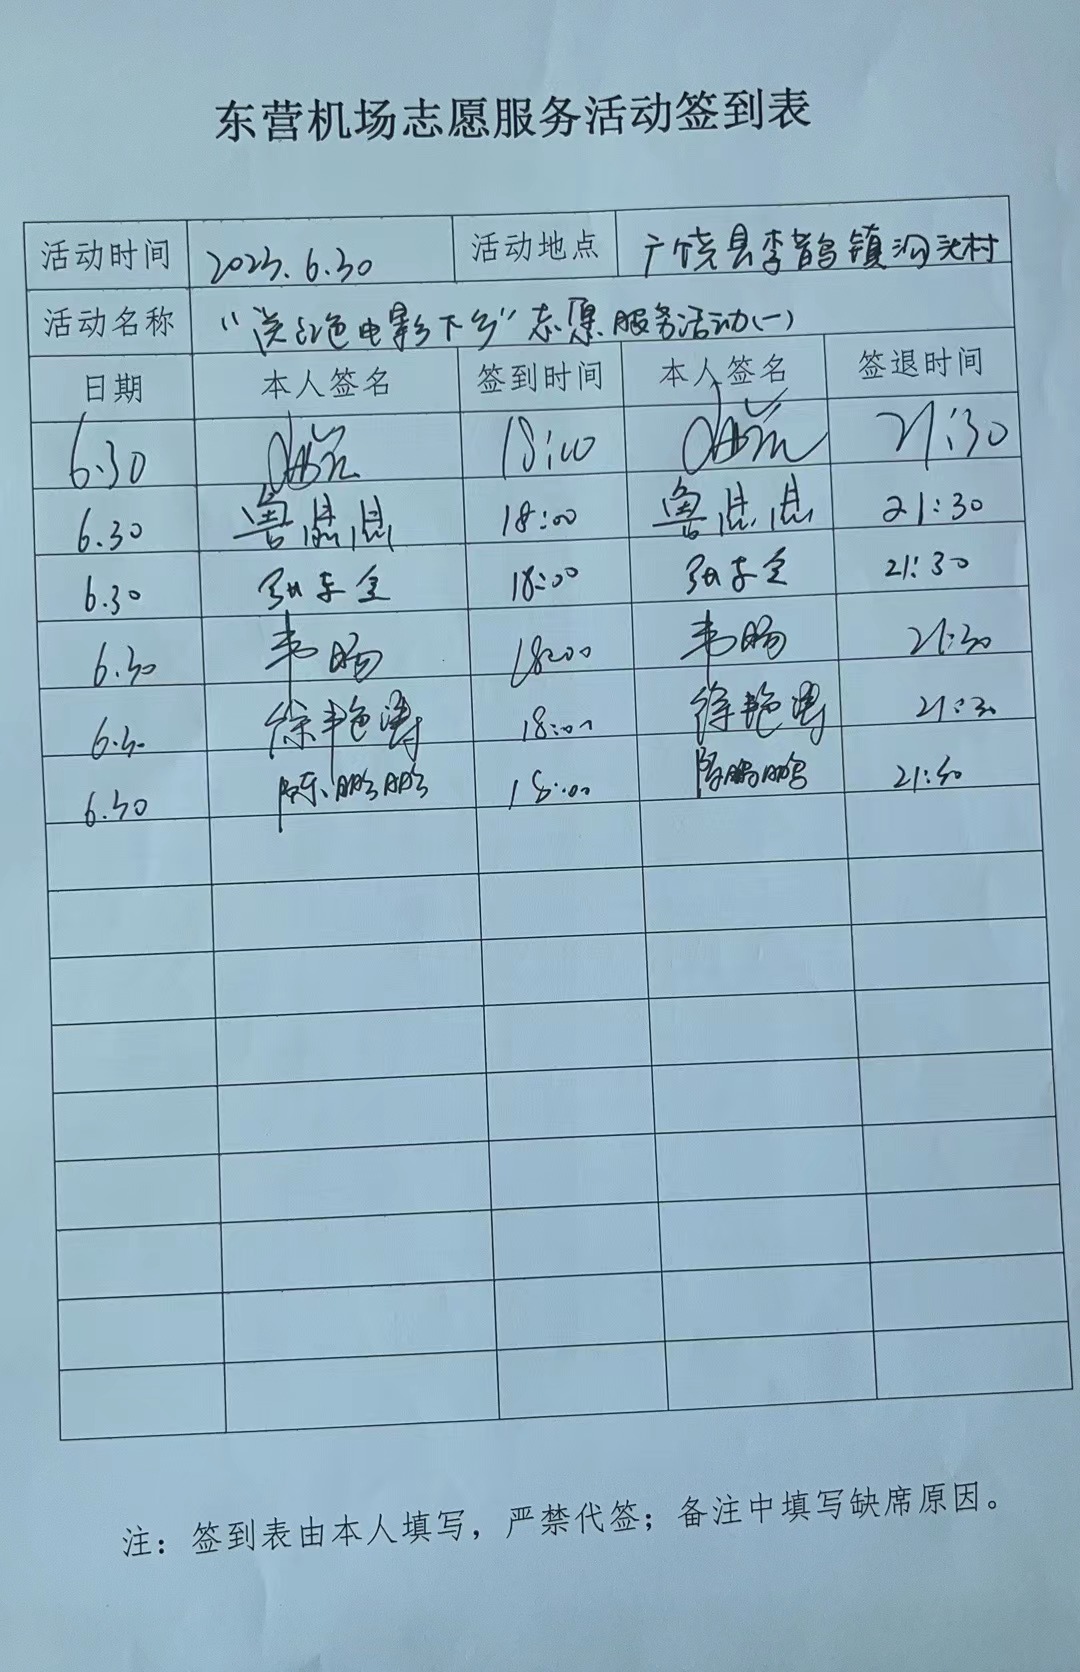 东营机场志愿服务活动签到表
活动时间 2023.6.30 活动地点 广饶县李鹊镇 村
活动名称 “送红色电影下乡”志愿服务活动(一)
日期 本人签名 签到时间 本人签名 签退时间
6.30 18:00 21:30
6.30 鲁 18:00 鲁 21:30
6.30 张东全 18:00 张东全 21:30
6.30 韦旸 18:00 韦旸 21:30
6.30 徐艳涛 18:00 徐艳涛 21:30
6.30 陈鹏鹏 18:00 陈鹏鹏 21:30
注：签到表由本人填写，严禁代签；备注中填写缺席原因。